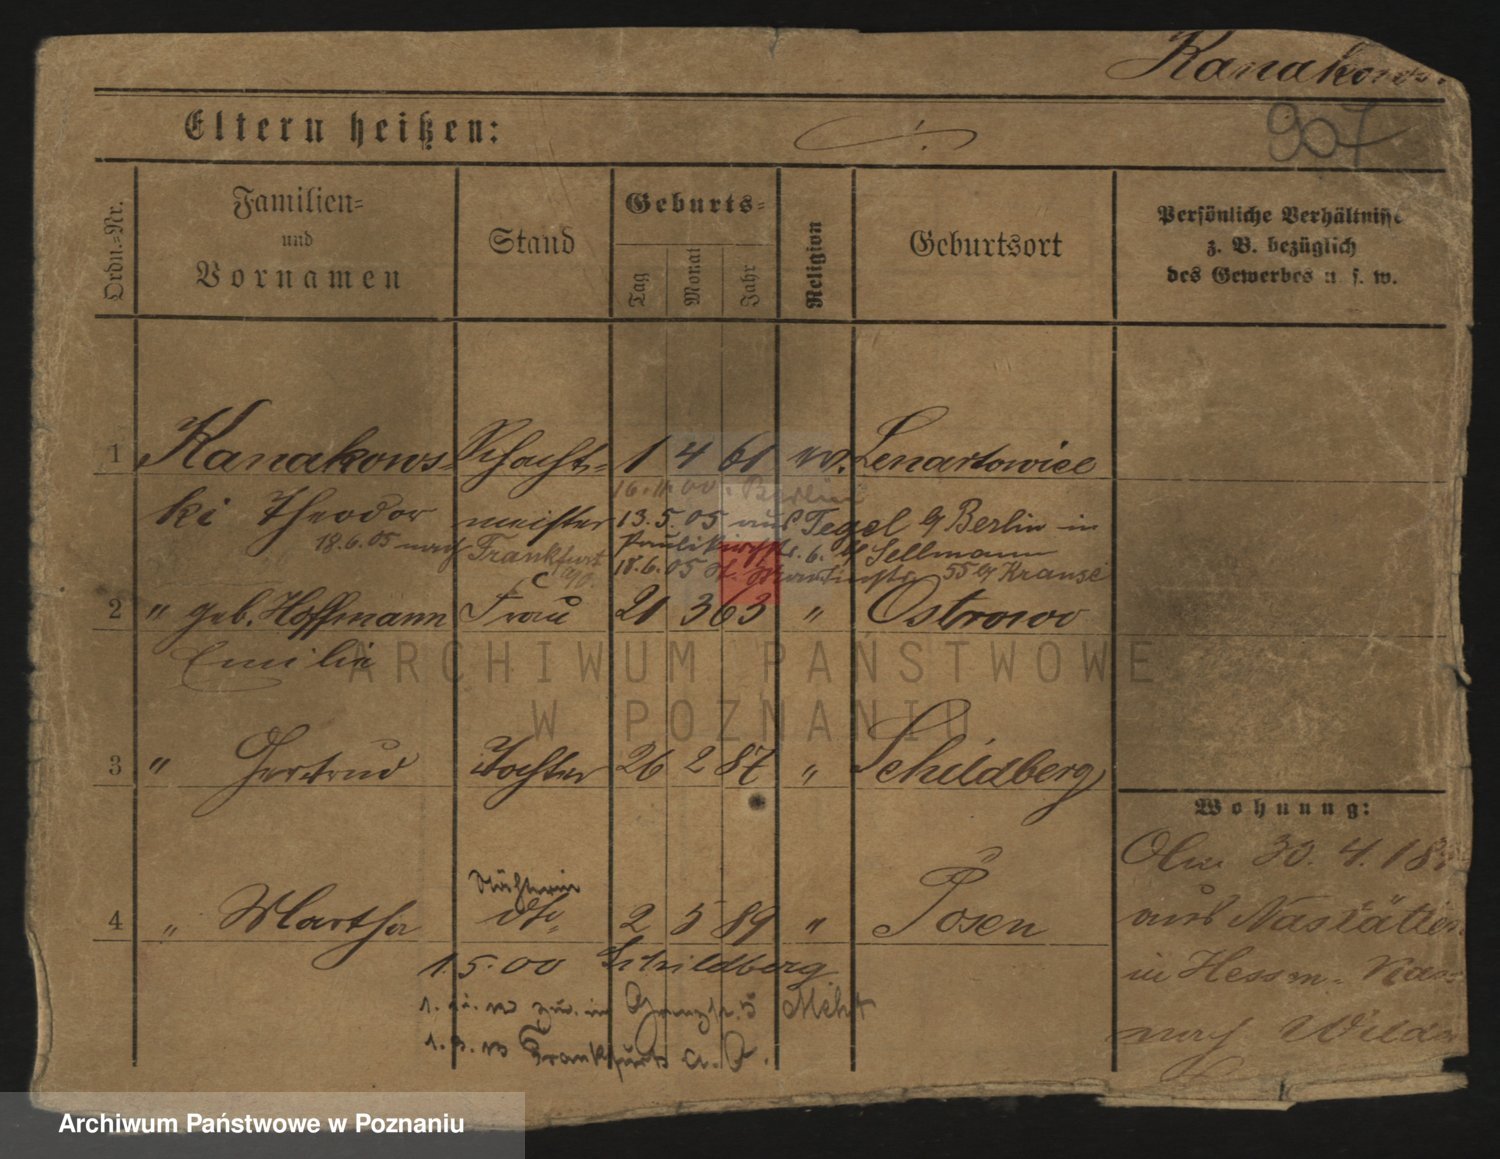 Kanakows.
907
Eltern heißen:
Ordn.=Nr.
Familien=
und
Vornamen
Stand
Geburts=
Tag
Monat
Jahr
Religion
Geburtsort
Persönliche Verhältnisse
z. B. bezüglich
des Gewerbes u. s. w.
1 Kanakows- Schacht= 1 4 61 Lenartowice
ki Theodor meister
16.11.00 Berlin
13.5.05 aus Tegel b/ Berlin in
Paulikirchstr. 6. b/ Sellmann
18.6.05 nach Frankfurt
18.6.05 St. Martinstr. 55 b/ Krause
2 " geb. Hoffmann Frau 21 3 63 " Ostrowo
Emilie
3 " Gertrud Tochter 26 2 87 " Schildberg
Wohnung:
30. 4. 18
aus Nastätten
in Hessn.
nach Wilda
Nähterin
4 " Martha dto 2 5 89 " Posen
1.5.00 Schildberg
1. in 5
1. Frankfurt a. O.
ARCHIWUM PAŃSTWOWE
W POZNANIU
Archiwum Państwowe w Poznaniu